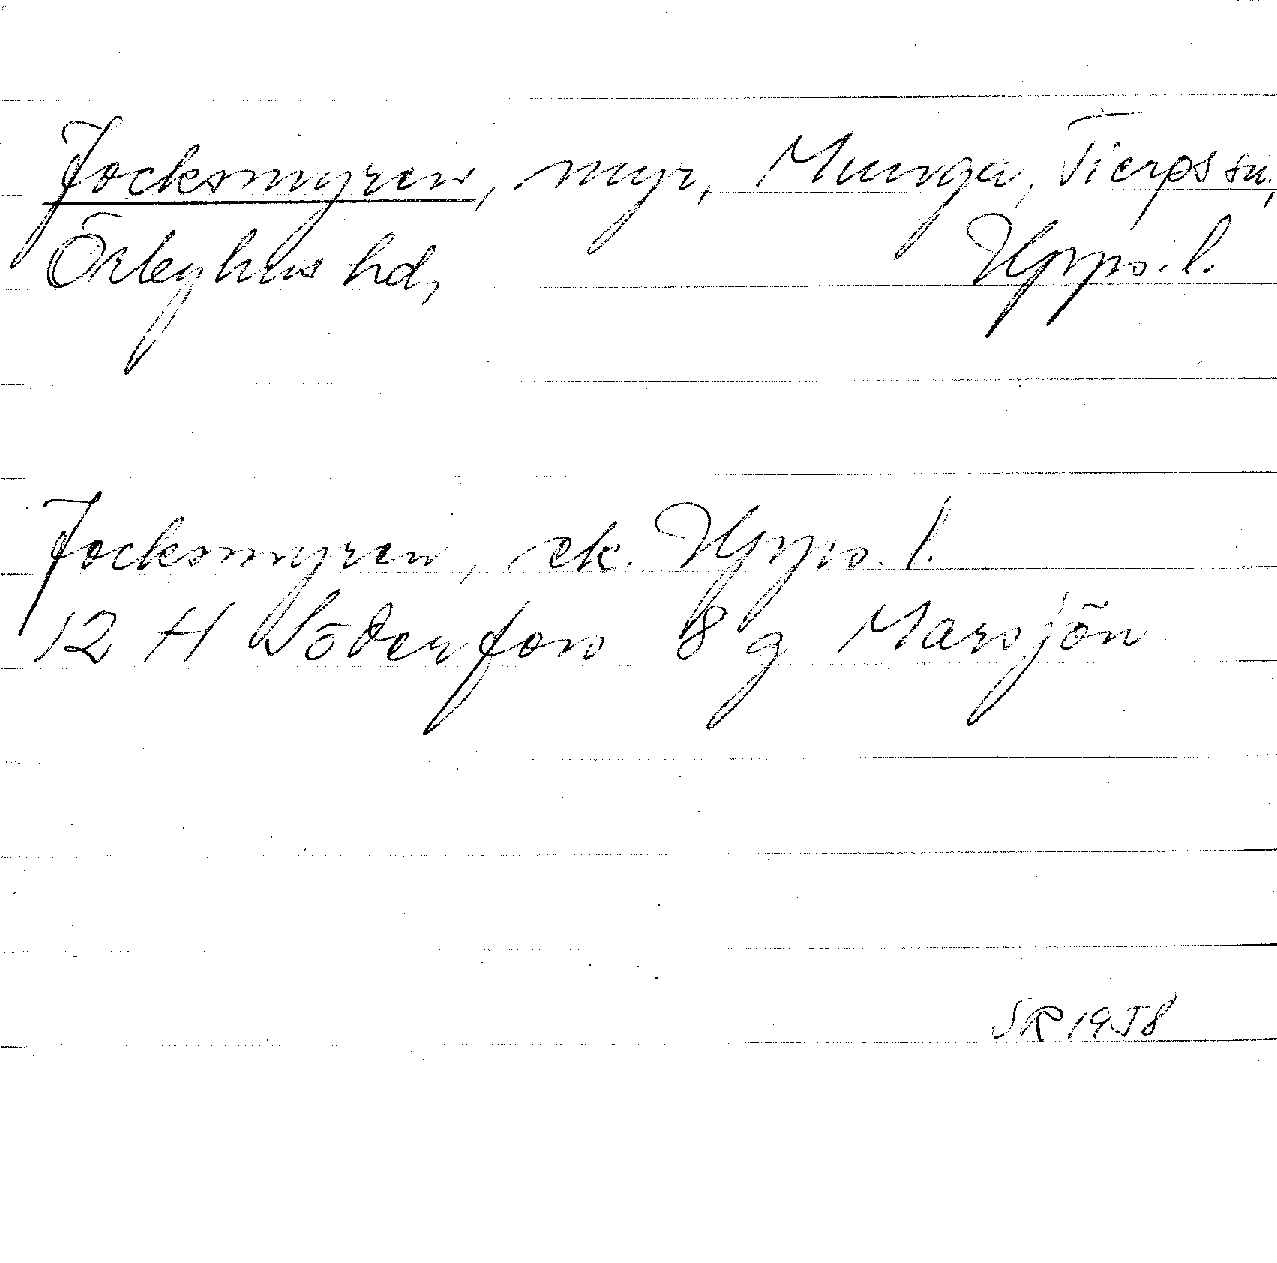 Jocksmyren, myr, Munga, Tierps sn,
Örbyhus hd, Upps. l.
Jocksmyren, ek. Upps. l.
12 H Söderfors 8 g Marsjön
SR 1958